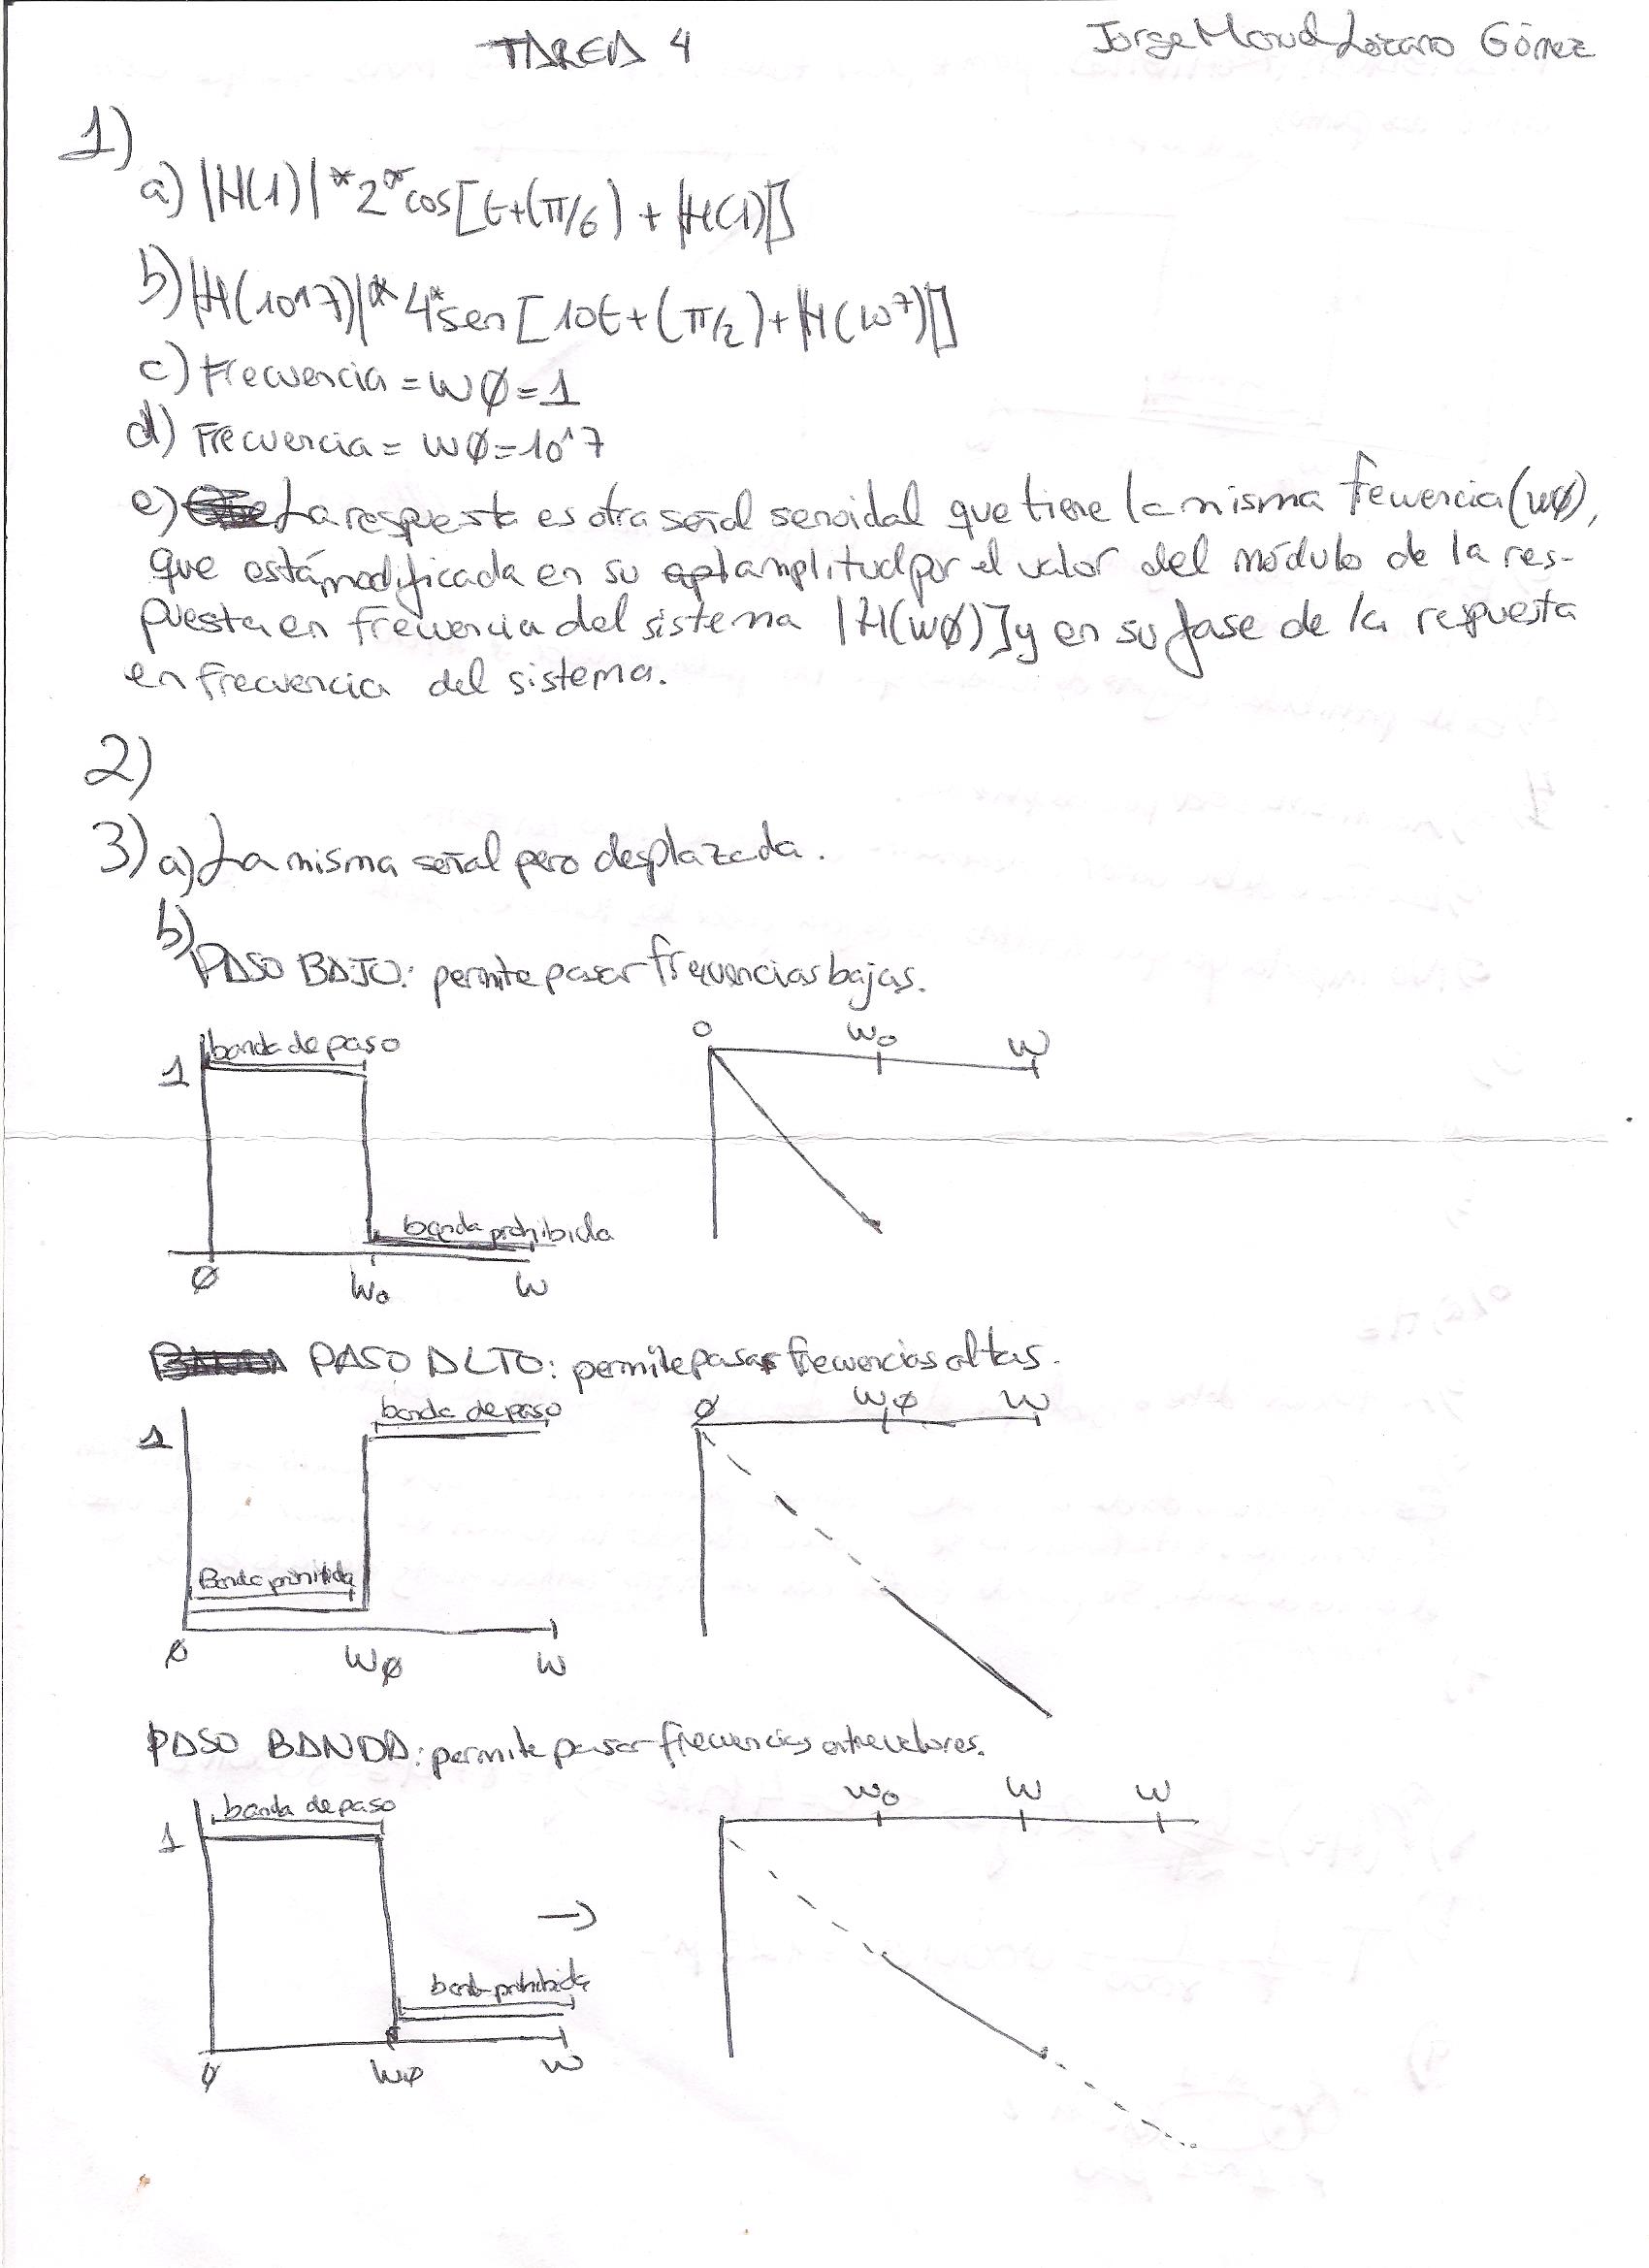 TAREA 4
Jorge Manuel Lozano Gómez
1)
a) |H(1)|*2*cos[t+(π/6)+|H(1)|]
b) |H(10^7)|*4*sen[10t+(π/2)+|H(10^7)|]
c) Frecuencia = wø=1
d) Frecuencia = wø=10^7
e) La respuesta es otra señal senoidal que tiene la misma fewencia (wø),
que está modificada en su amplitud por el valor del módulo de la res-
puesta en frecuencia del sistema |H(wø)] y en su fase de la respuesta
en frecuencia del sistema.
2)
3) a) La misma señal pero desplazada.
b)
PASO BAJO: permite pasar frecuencias bajas.
banda de paso
1
banda prohibida
ø wo w
0 wo w
PASO ALTO: permite pasar frecuencias altas.
banda de paso
1
Banda prohibida
ø wø w
ø wø w
PASO BANDA: permite pasar frecuencias entre valores.
banda de paso
1
banda prohibida
ø wø w
→
wo w w